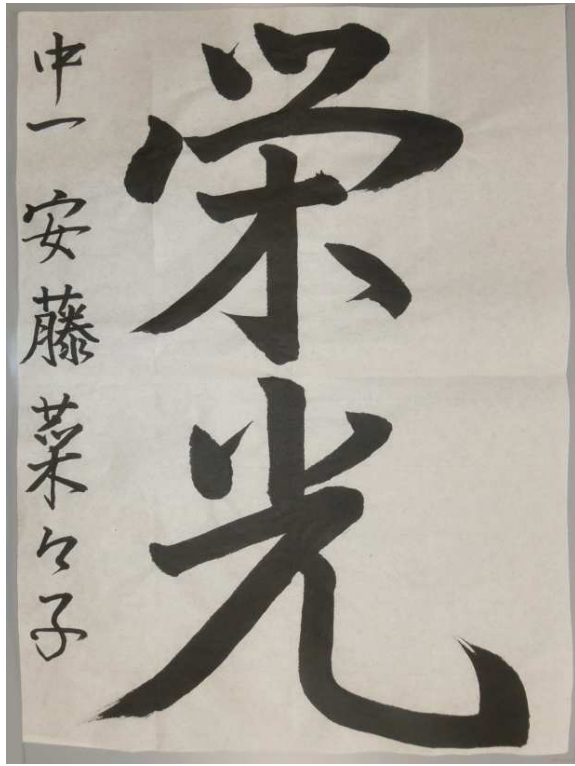 栄光
中一 安藤菜々子